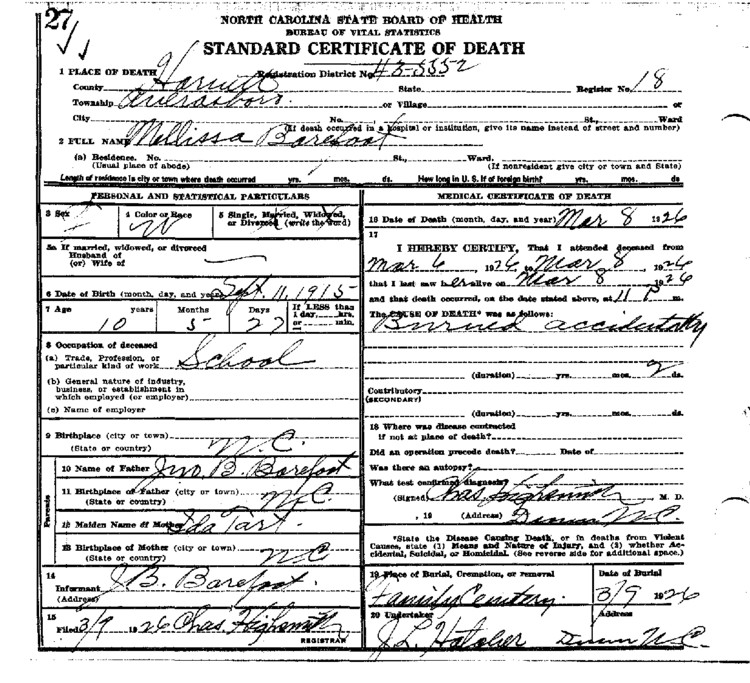 27
NORTH CAROLINA STATE BOARD OF HEALTH
BUREAU OF VITAL STATISTICS
STANDARD CERTIFICATE OF DEATH
1 PLACE OF DEATH Registration District No. 43-5352
County Harnett State Register No. 18
Township Averasboro or Village or
City No. St., Ward
(If death occurred in a hospital or institution, give its name instead of street and number)
2 FULL NAME Mellissa Barefoot
(a) Residence. No. St., Ward.
(Usual place of abode) (If nonresident give city or town and State)
Length of residence in city or town where death occurred yrs. mos. ds. How long in U. S. if of foreign birth? yrs. mos. ds.
PERSONAL AND STATISTICAL PARTICULARS
3 Sex 4 Color or Race 5 Single, Married, Widowed,
or Divorced (write the word)
W
5a If married, widowed, or divorced
Husband of
(or) Wife of
6 Date of Birth (month, day, and year) Sept. 11, 1915
7 Age years Months Days If LESS than
1 day, hrs.
or min.
10 5 27
8 Occupation of deceased
(a) Trade, Profession, or
particular kind of work School
(b) General nature of industry,
business, or establishment in
which employed (or employer)
(c) Name of employer
9 Birthplace (city or town)
(State or country) N.C.
Parents
10 Name of Father Jno. B. Barefoot
11 Birthplace of Father (city or town)
(State or country) N.C.
12 Maiden Name of Mother Ida Tart.
13 Birthplace of Mother (city or town)
(State or country) N C
14
Informant J. B. Barefoot.
(Address)
15
Filed 3/9 1926 Chas. Highsmith
REGISTRAR
MEDICAL CERTIFICATE OF DEATH
16 Date of Death (month, day, and year) Mar 8 1926
17
I HEREBY CERTIFY, That I attended deceased from
Mar 6, 1926, to Mar 8, 1926
that I last saw her alive on Mar 8 1926
and that death occurred, on the date stated above, at 11 P m.
The CAUSE OF DEATH* was as follows:
Burned accidentally
(duration) yrs. mos. 2 ds.
Contributory
(SECONDARY)
(duration) yrs. mos. ds.
18 Where was disease contracted
if not at place of death?
Did an operation precede death? Date of
Was there an autopsy?
What test confirmed diagnosis?
(Signed) Chas Highsmith M. D.
, 19 (Address) Dunn N.C.
*State the Disease Causing Death, or in deaths from Violent
Causes, state (1) Means and Nature of Injury, and (2) whether Ac-
cidental, Suicidal, or Homicidal. (See reverse side for additional space.)
19 Place of Burial, Cremation, or removal Date of Burial
Family Cemetery. 3/9 1926
20 Undertaker Address
J. L. Hatcher Dunn N.C.